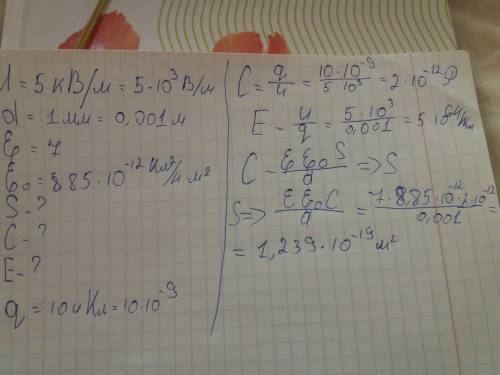 U = 5 кВ/м = 5·10³ В/м
d = 1 мм = 0,001 м
ε = 7
ε₀ = 8,85·10⁻¹² Кл²/н·м²
S - ?
C - ?
E - ?
q = 10 нКл = 10·10⁻⁹
C = q/u = 10·10⁻⁹/5·10³ = 2·10⁻¹² Ф
E = u/q = 5·10³/0,001 = 5·10⁶ н/Кл
C = εε₀S/d => S
S => εε₀C/d = 7·8,85·10⁻¹²·2·10⁻¹²/0,001 =
= 1,239·10⁻¹⁹ м²